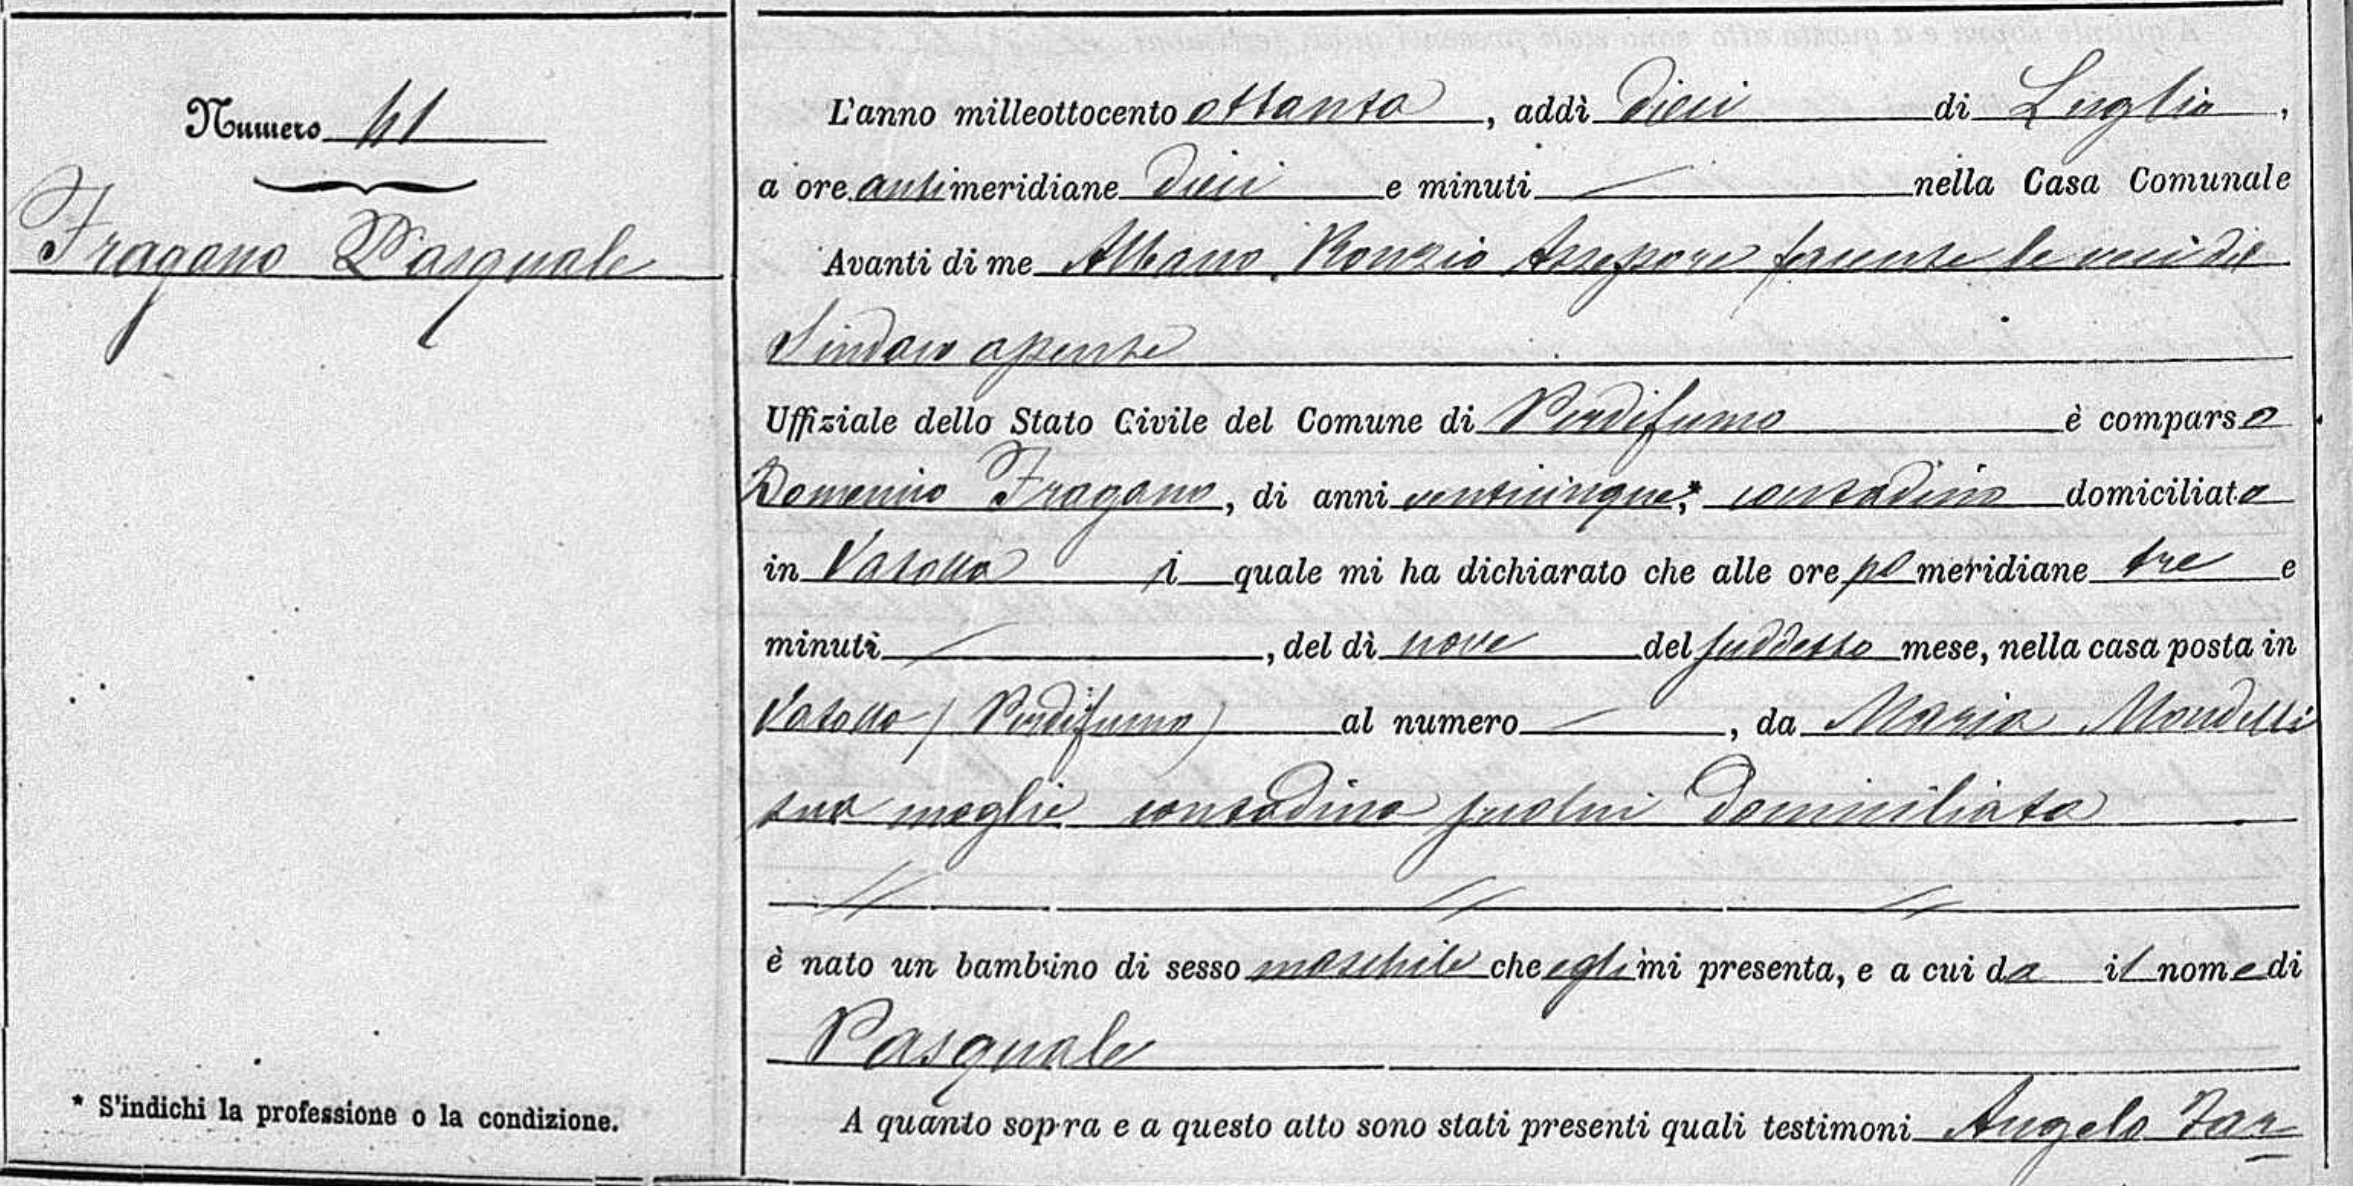 Numero 41
Fragano Pasquale
L'anno milleottocento ottanta, addì dieci di Luglio,
a ore antimeridiane dieci e minuti — nella Casa Comunale
Avanti di me Albano Assessore facente le veci del
Sindaco assente
Uffiziale dello Stato Civile del Comune di Perdifumo è comparso
Domenico Fragano, di anni venticinque,* contadino domiciliato
in Vatolla il quale mi ha dichiarato che alle ore pomeridiane tre e
minuti —, del dì nove del suddetto mese, nella casa posta in
Vatolla (Perdifumo) al numero —, da Maria Mondelli
sua moglie contadina seco lui domiciliata
è nato un bambino di sesso maschile che egli mi presenta, e a cui da il nome di
Pasquale
* S'indichi la professione o la condizione.
A quanto sopra e a questo atto sono stati presenti quali testimoni Angelo Tar